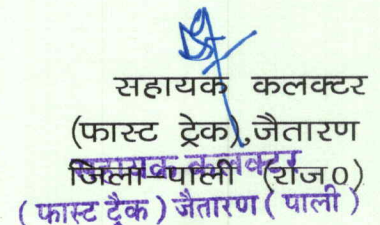 सहायक कलक्टर
(फास्ट ट्रेक), जैतारण
जिला-पाली (राज0)
सहायक कलक्टर
( फास्ट ट्रैक ) जैतारण ( पाली )